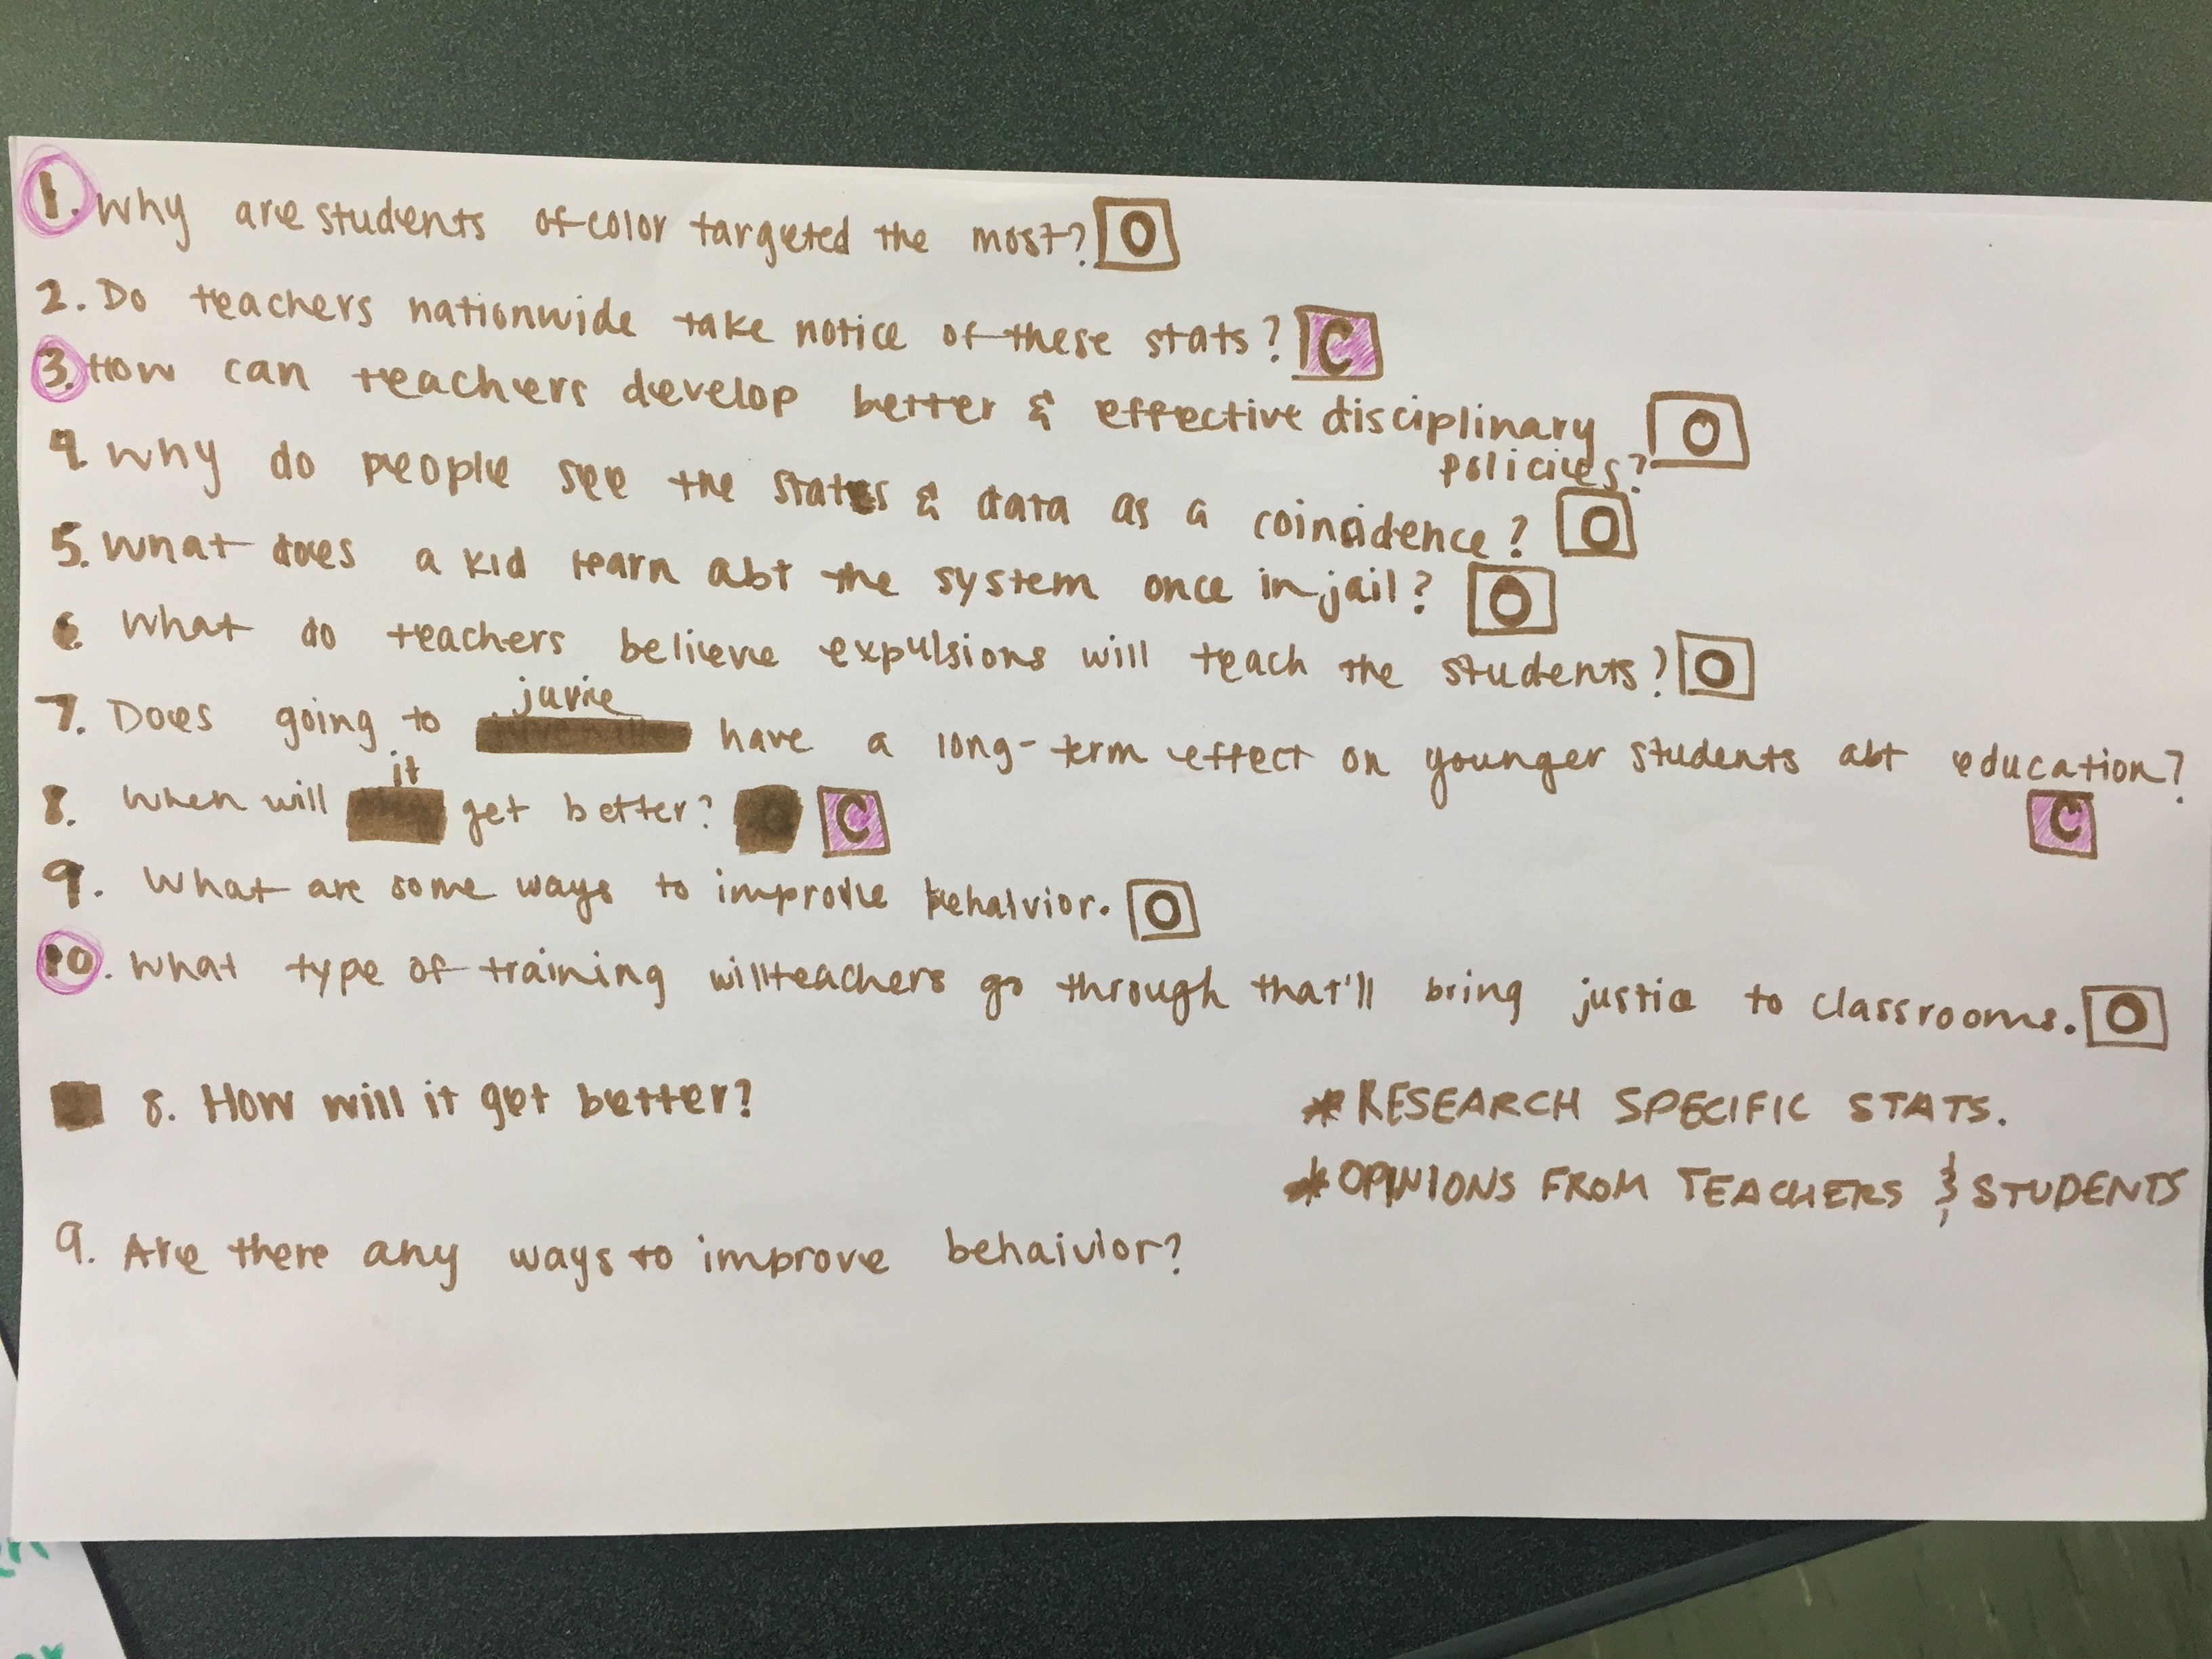 1. Why are students of color targeted the most? O
2. Do teachers nationwide take notice of these stats? C
3. How can teachers develop better & effective disciplinary O
policies?
4. Why do people see the stats & data as a coincidence? O
5. What does a kid learn abt the system once in jail? O
6. What do teachers believe expulsions will teach the students? O
juvie
7. Does going to have a long-term effect on younger students abt education?
C
it
8. When will get better? C
9. What are some ways to improve behaivior. O
10. What type of training will teachers go through that'll bring justice to classrooms. O
8. How will it get better?
* RESEARCH SPECIFIC STATS.
* OPINIONS FROM TEACHERS & STUDENTS
9. Are there any ways to improve behaivior?